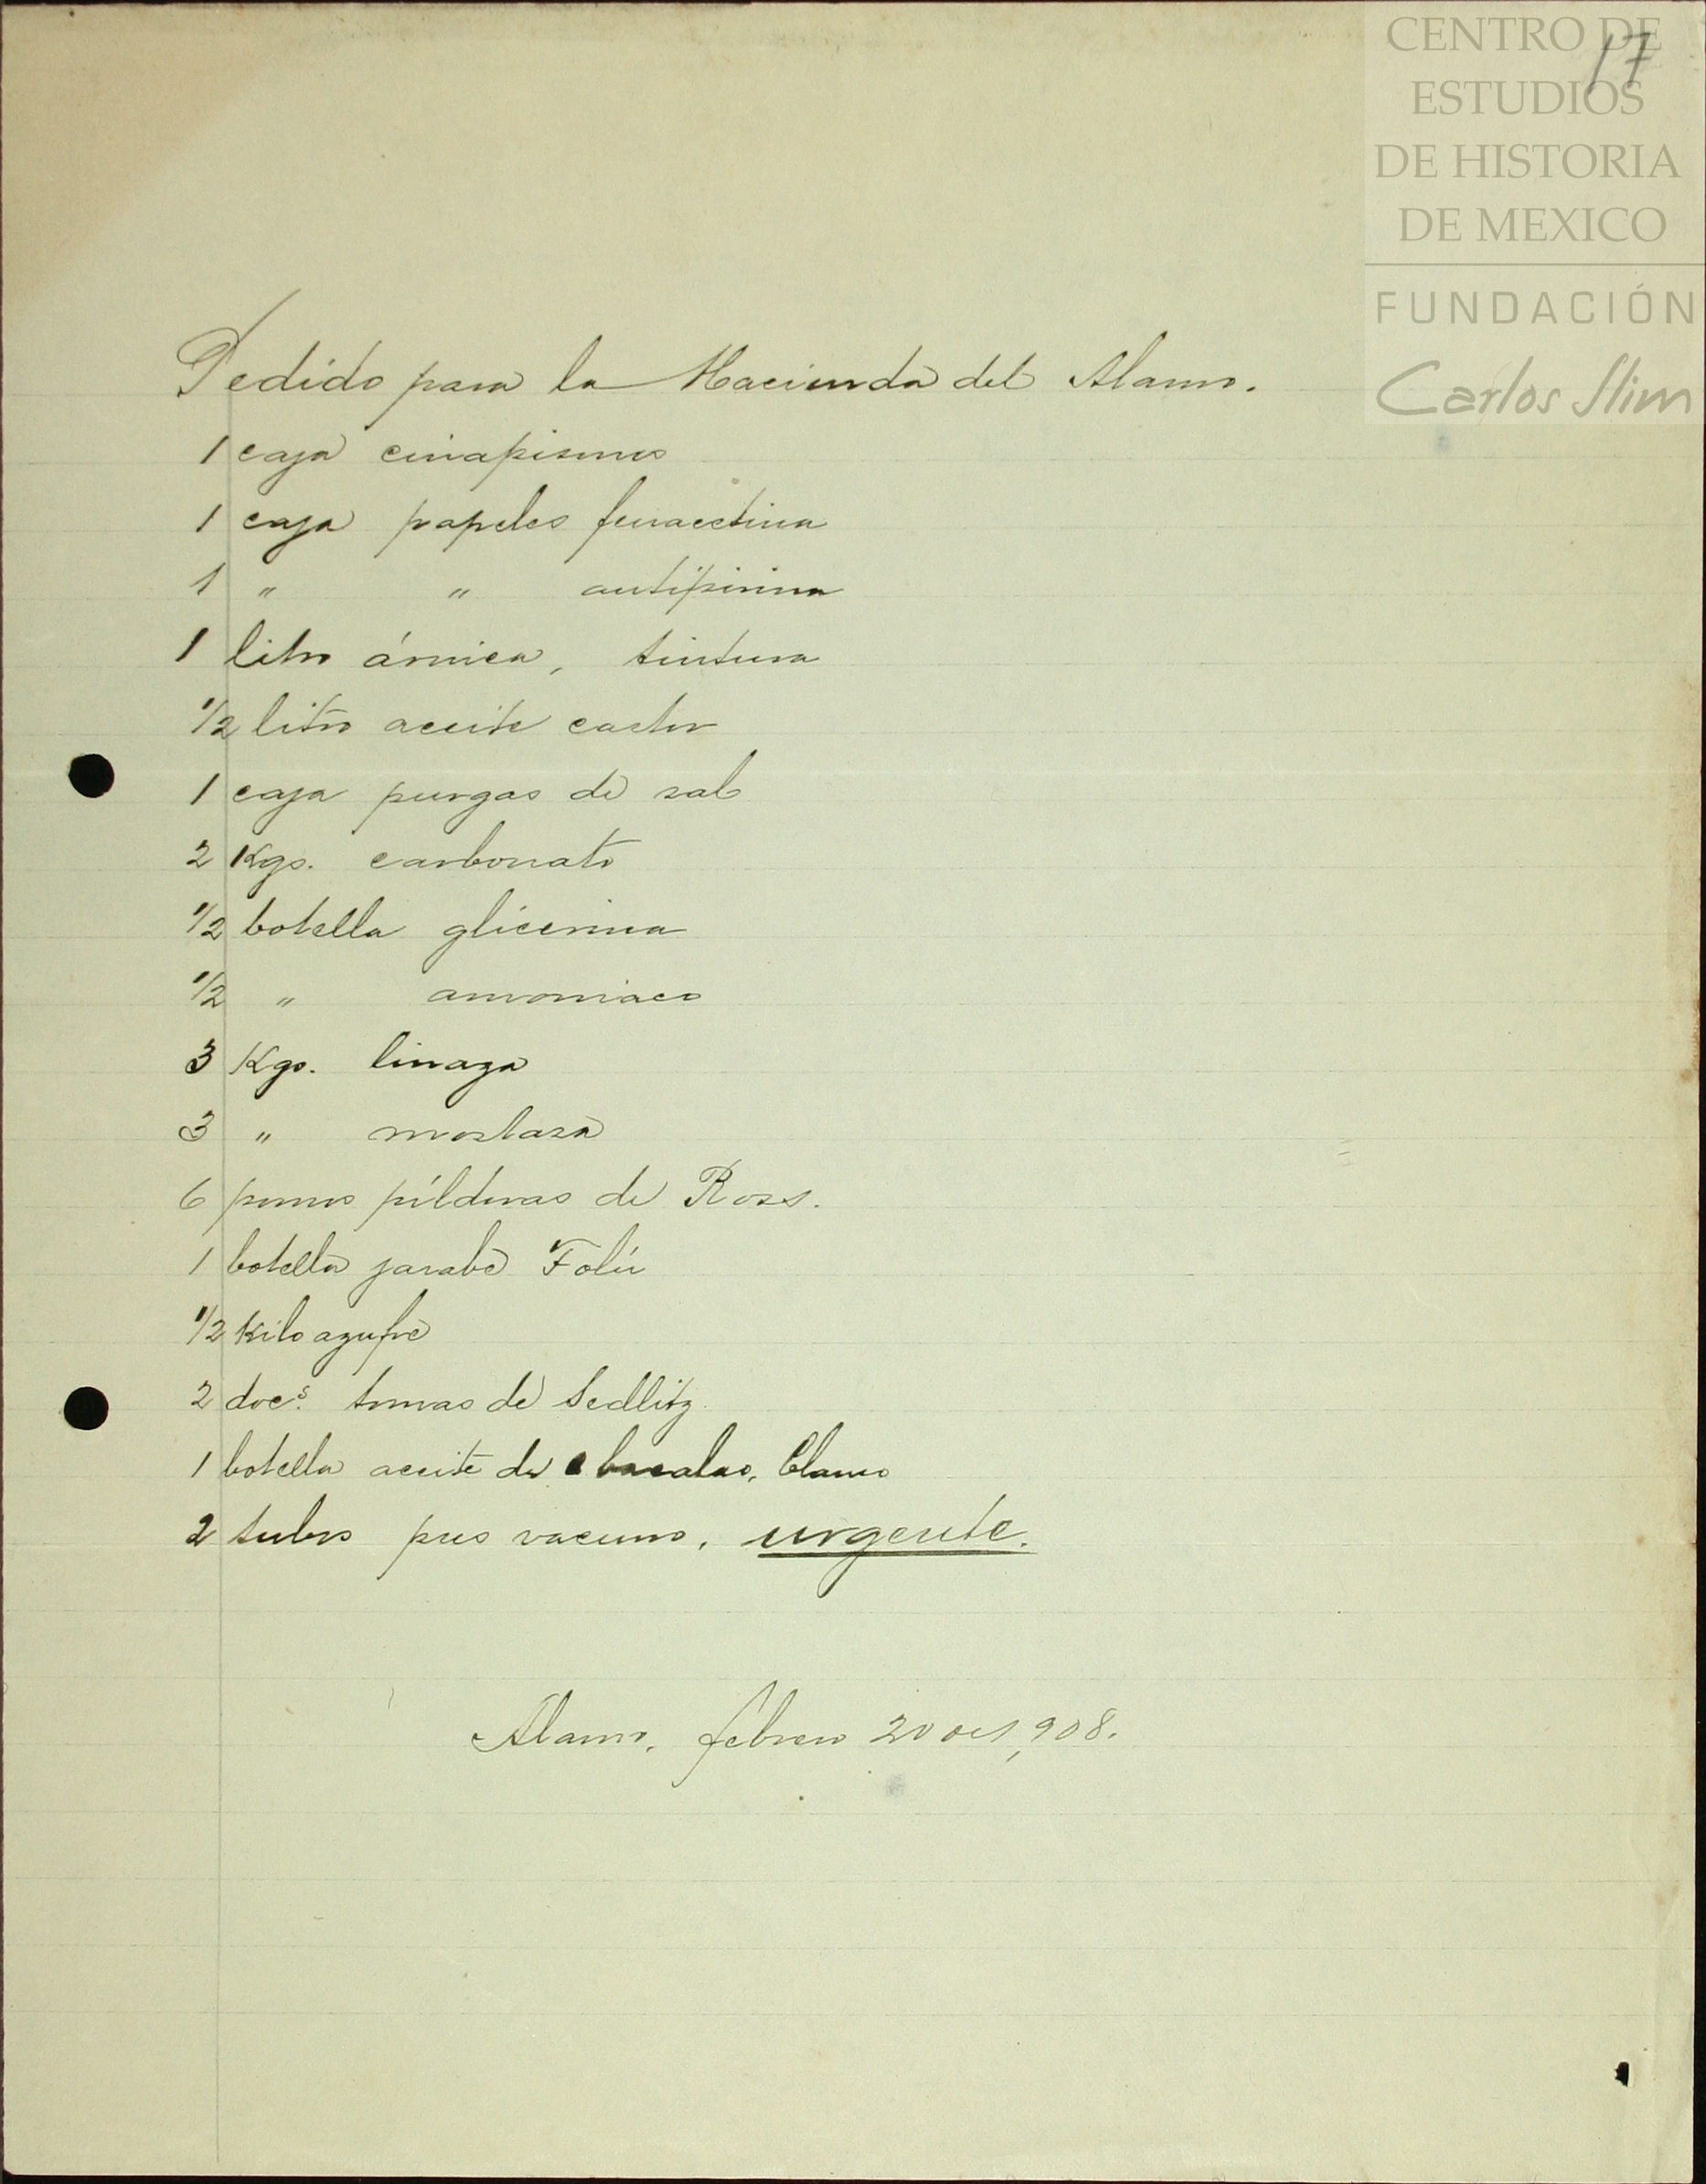 CENTRO DE
ESTUDIOS
DE HISTORIA
DE MEXICO
FUNDACIÓN
Carlos Slim
17
Pedido para la Hacienda del Alamo.
1 caja cinapismos
1 caja papeles fenacetina
1 " " antipirina
1 litro árnica, tintura
1/2 litro aceite castor
1 caja purgas de sal
2 Kgs. carbonato
1/2 botella glicerina
1/2 " amoniaco
3 Kgs. linaza
3 " mostasa
6 pomos píldoras de Ross.
1 botella jarabe Folú
1/2 kilo azufre
2 doc.s tomas de Sedlitz.
1 botella aceite de bacalao, blanco
2 tubos pus vacuno, urgente.
Alamo, febrero 20 de 1,908.